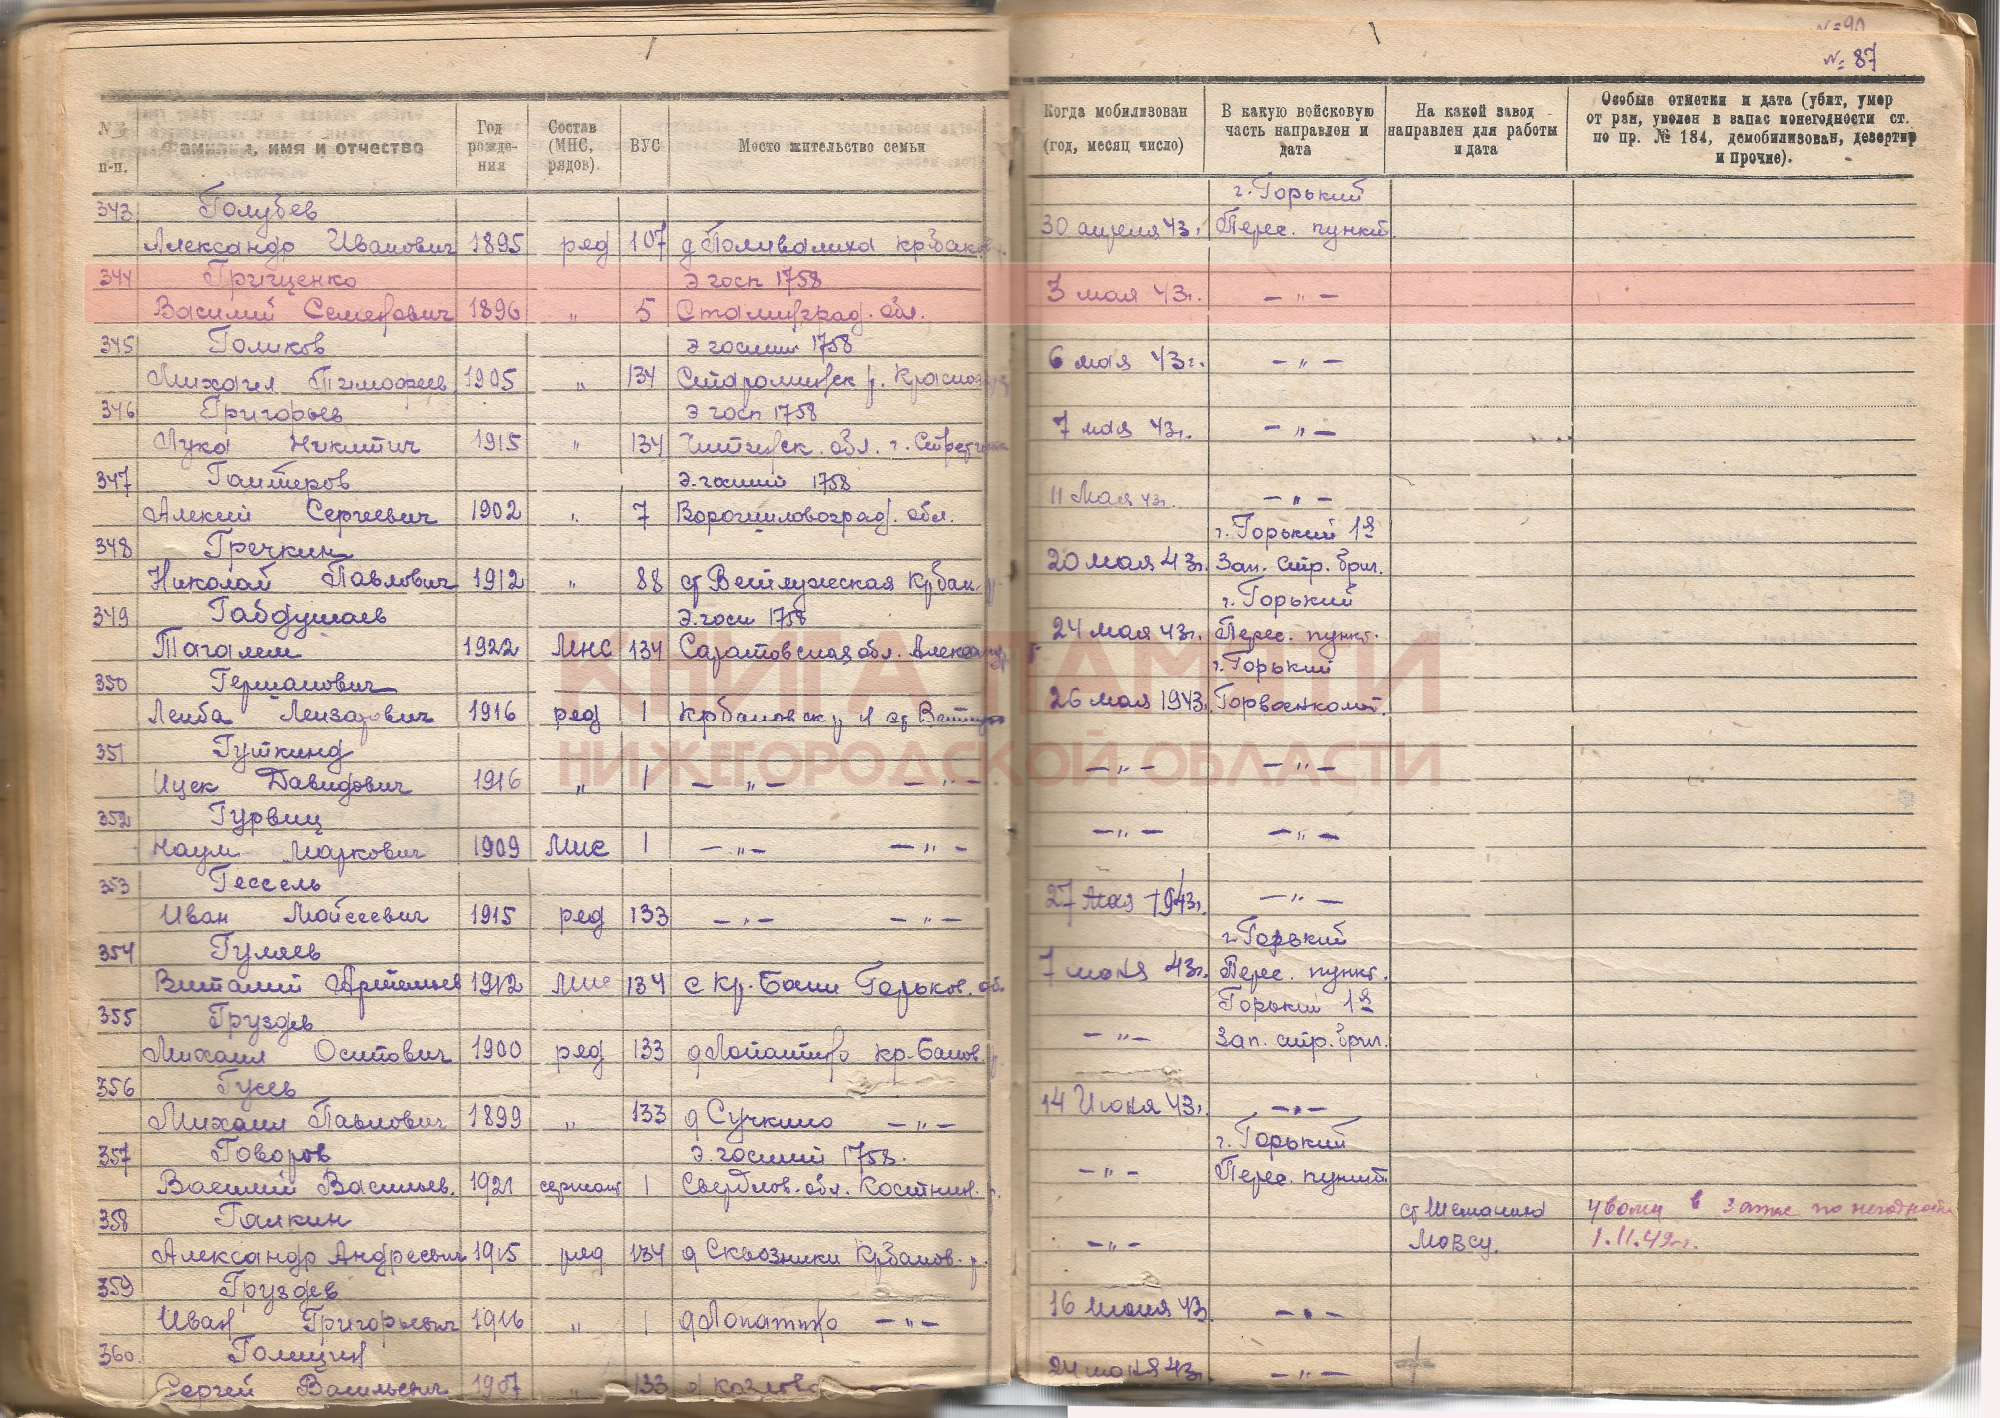 № 90
№ 87
№№ п-п.
Фамилия, имя и отчество
Год рожде- ния
Состав (МНС, рядов).
ВУС
Место жительство семьи
Когда мобилизован (год, месяц число)
В какую войсковую часть направлен и дата
На какой завод направлен для работы и дата
Особые отметки и дата (убит, умер от ран, уволен в запас понегодности ст. по пр. № 184, демобилизован, дезертир и прочие).
343 Голубев г. Горький
Александр Иванович 1895 ряд 107 д Поливалиха 30 апреля 43г. Перес. пункт
344 Грищенко Э госп 1758
Василий Семенович 1896 " 5 Сталинград. обл. 3 мая 43г. — " —
345 Голиков Э госпит 1758
Михаил Тимофеев 1905 " 134 6 мая 43г. — " —
346 Григорьев Э госп 1758
Лука Никитич 1915 " 134 Читинск. обл. г. 7 мая 43г. — " —
347 Э. госпит 1758
Алексей Сергеевич 1902 " 7 Ворошиловоград. обл. 11 Мая 43г. — " —
348 Гречкин г. Горький 1я
Николай Павлович 1912 " 88 ст Ветлужская Крбак. 20 мая 43г. Зап. стр. бриг.
349 Габдушаев Э. госп 1758 г. Горький
1922 МНС 134 Саратовская обл. 24 мая 43г. Перес. пункт.
350 Германович г. Горький
Лейба Лейзарович 1916 ряд 1 26 мая 1943г. Горвоенкомат.
351 Гуткинд
Ицек Давидович 1916 " 1 — " — — " — — " — — " —
352 Гурвиц
Наум Маркович 1909 МНС 1 — " — — " — — " — — " —
353 Гессель
Иван Мойсеевич 1915 ряд 133 — " — — " — 27 мая 1943г. — " —
354 Гуляев г. Горький
Виталий Артемьев 1912 МНС 134 с Кр. Баки Горьков. об. 7 июня 43г. Перес. пункт.
355 Груздев Горький 1я
Михаил Осипович 1900 ряд 133 д Лопатино кр-Баков. — " — Зап. стр. бриг.
356 Гусев
Михаил Павлович 1899 " 133 д Сучкино — " — 14 Июня 43г. — " —
357 Говоров Э. госпит 1758. г. Горький
Василий Васильев. 1921 сержант 1 Свердлов. обл. — " — Перес. пункт
358 Галкин ст Шеманиха уволен в запас по негодности
Александр Андреевич 1915 ряд 134 д Сквозники Крбаков. р. — " — 1.11.42г.
359 Груздев
Иван Григорьевич 1916 " 1 д Лопатино — " — 16 июня 43г. — " —
360. Голицин
Сергей Васильевич 1907 " 133 д 24 июня 43г. — " —
КНИГА ПАМЯТИ
НИЖЕГОРОДСКОЙ ОБЛАСТИ